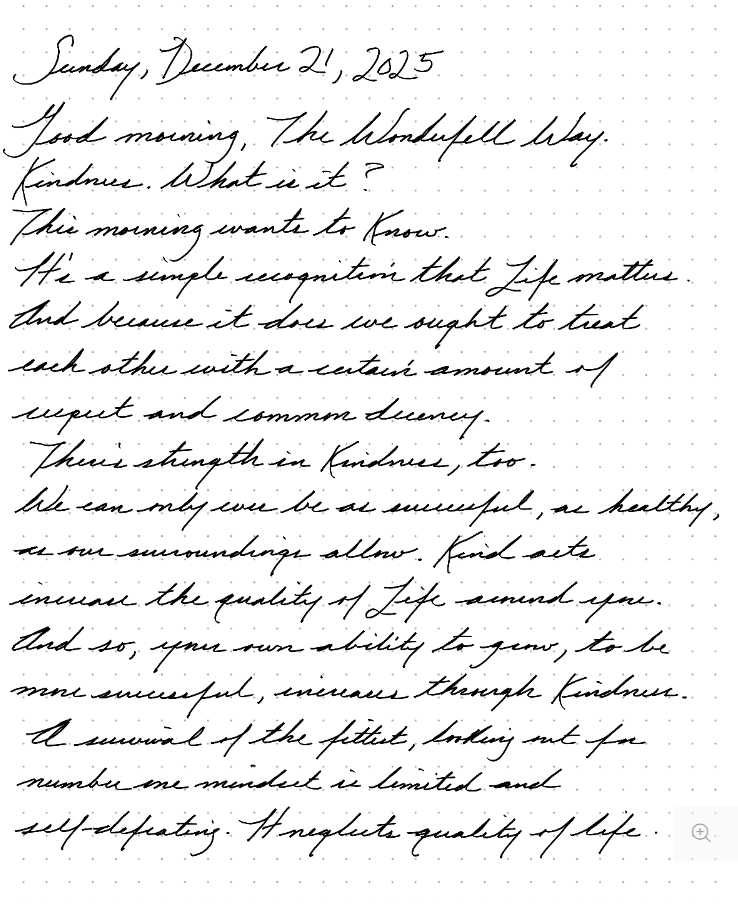 Sunday, December 21, 2025
Good morning, The Wonderfell Way.
Kindness. What is it?
This morning wants to Know.
It's a simple recognition that Life matters.
And because it does we ought to treat
each other with a certain amount of
respect and common decency.
There's strength in Kindness, too.
We can only ever be as successful, as healthy,
as our surroundings allow. Kind acts
increase the quality of Life around you.
And so, your own ability to grow, to be
more successful, increases through Kindness.
A survival of the fittest, looking out for
number one mindset is limited and
self-defeating. It neglects quality of life.